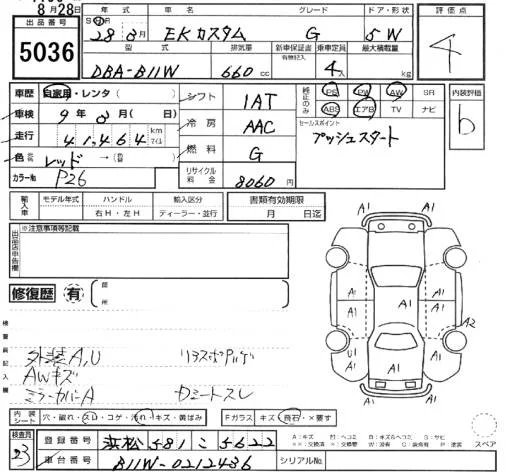 8月28日
出品番号 5036
年式 車名 グレード ドア・形状 評価点
28年8月 EKカスタム G 5W 4
型式 排気量 新車保証書 有物記入 乗車定員 最大積載量
DBA-B11W 660cc 4人 kg
車歴 自家用・レンタ( )
シフト 1AT
純正のみ PS PW AW SR
ABS エアB TV ナビ
内装評価 b
車検 9年8月(日)
冷房 AAC
セールスポイント
プッシュスタート
走行 41,464 km マイル
燃料 G
色 レッド →( )
リサイクル料金 8060円
カラーNo P26
輸入車 モデル年式 ハンドル 輸入区分 書類有効期限
右H・左H ディーラー・並行 月 日迄
出品店申告欄 ※注意事項等記載
修復歴 有 箇所
A1 A1
A1 A1
A1 A1 A1
A2
U1 A1 A1
A1 A1
検査員記入欄
外装A,U リアスポアルゲ
AWキズ
ミラーカバーA Dミートスレ
内装シート 穴・破れ・スレ・コゲ・汚れ・キズ・黄ばみ
Fガラス キズ・飛石・×要す
A:キズ U:ヘコミ B:キズ&ヘコミ S:サビ
XX:交換済 X:要交換 W:波有 C:腐食有 P:塗装 スペア
検査員 23
登録番号 浜松581こ5622
車台番号 B11W-0212436 シリアルNo.